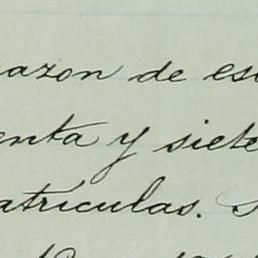 razon de es
enta y siete
atriculas.